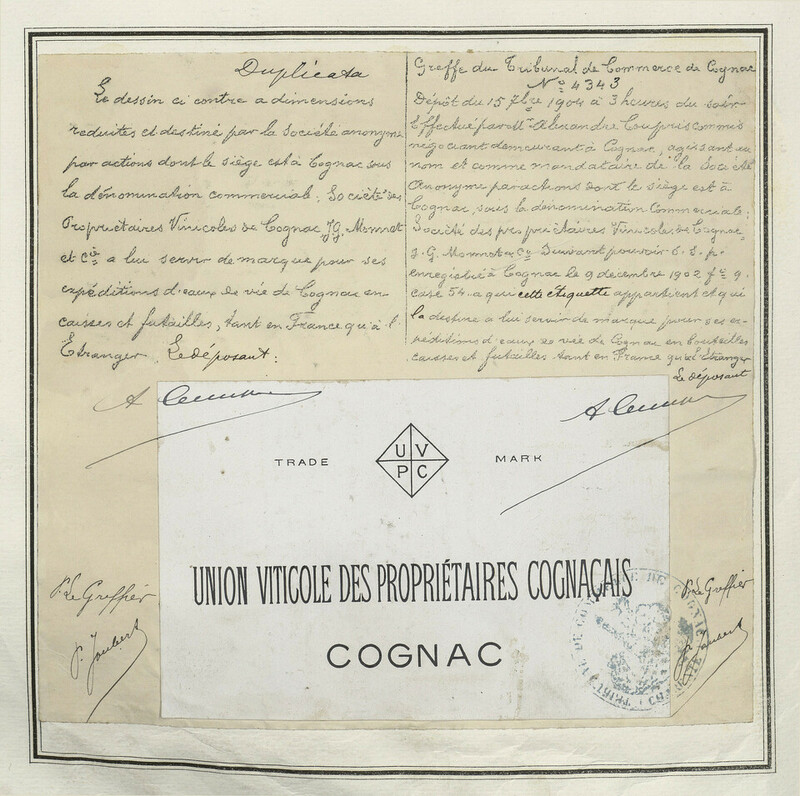 Duplicata
Le dessin ci contre a dimensions
reduites et destiné par la Société anonyme
par actions dont le siège est à Cognac sous
la dénomination commerciale: Société des
Propriétaires Vinicoles de Cognac J.G. Monnet
et Cie a lui servir de marque pour ses
expéditions d'eaux de vie de Cognac en
caisses et futailles, tant en France qu'à l'
Etranger. Le déposant:
Greffe du Tribunal de Commerce de Cognac
No 4343
Dépôt du 15 7bre 1904 à 3 heures du soir
Effectué par Mr Alexandre Coupris commis
négociant demeurant à Cognac, agissant au
nom et comme mandataire de la Société
Anonyme par actions dont le siège est à
Cognac, sous la dénomination Commerciale:
Société des propriétaires Vinicoles de Cognac
J. G. Monnet & Co Suivant pouvoir s. s. p.
enregistré à Cognac le 9 decembre 1902 fo 9
case 54 a qui cette étiquette appartient et qui
la destine a lui servoir de marque pour ses ex-
péditions d'eaux de vie de Cognac en bouteilles
caisses et futailles tant en France qu'à l'Etranger
Le déposant
TRADE MARK
U V
P C
UNION VITICOLE DES PROPRIÉTAIRES COGNAÇAIS
COGNAC
Pr Le Greffier
P. Joubert
Pr Le Greffier
P. Joubert
TRIBUNAL DE COMMERCE DE COGNAC